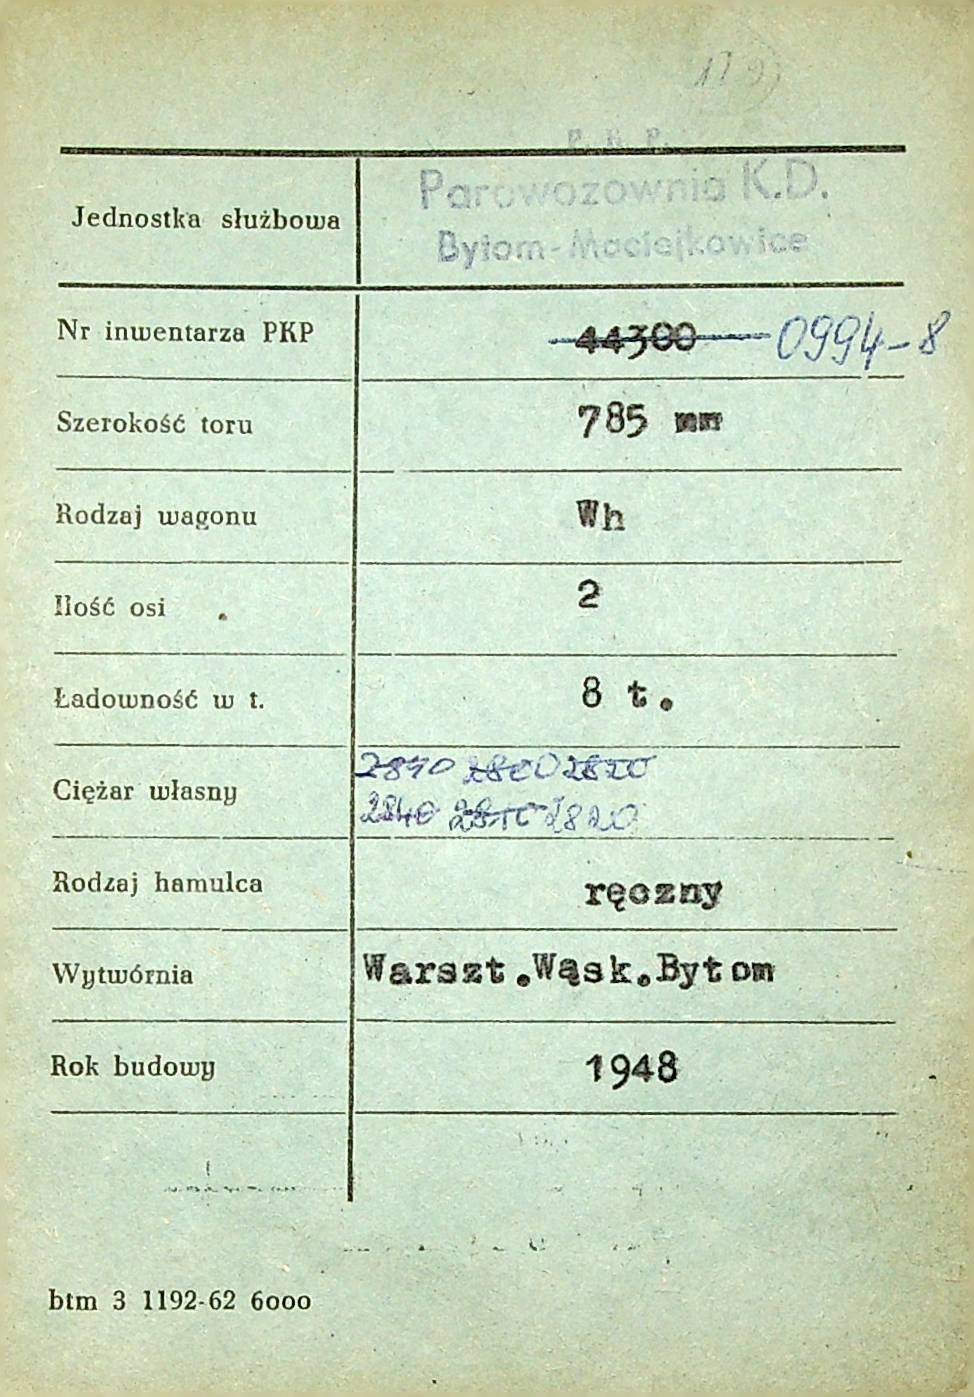 P. K. P.
Parowozownia K.D.
Jednostka służbowa
Bytom-Maciejkowice
Nr inwentarza PKP 44300 0994-8
Szerokość toru 785 mm
Rodzaj wagonu Wh
Ilość osi 2
Ładowność w t. 8 t.
2820
Ciężar własny
2840 2810 2820
Rodzaj hamulca ręczny
Wytwórnia Warszt.Wąsk.Bytom
Rok budowy 1948
btm 3 1192-62 6000